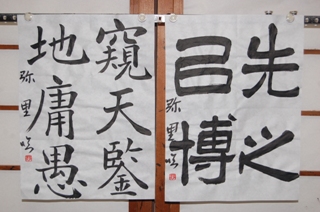 先之
㠯博
弥里
窺天鑒
地庸愚
弥里